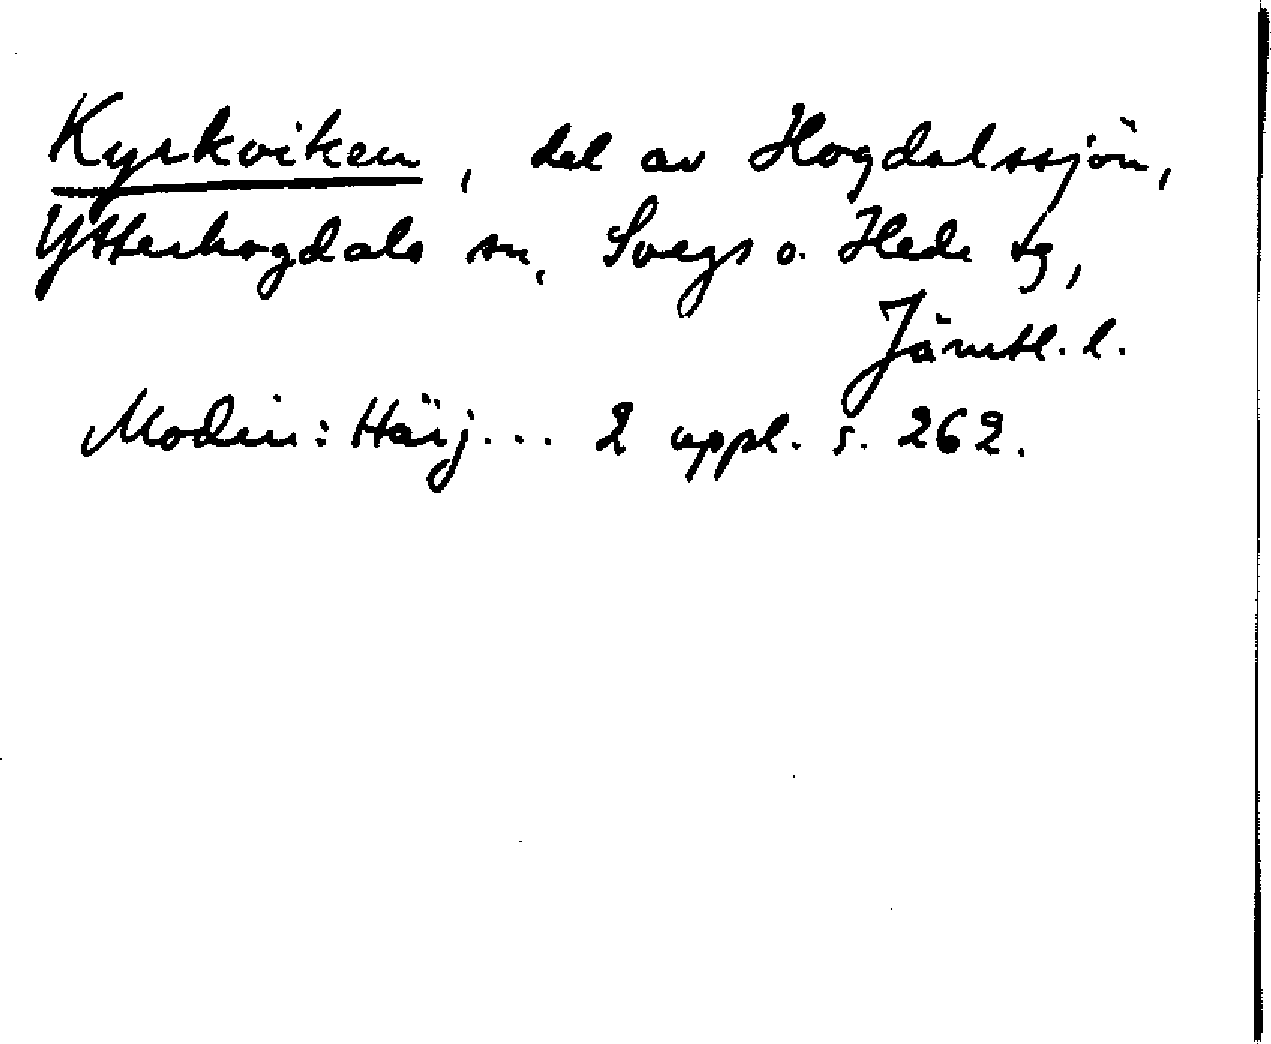 Kyrkviken, del av Hogdalssjön,
Ytterhogdals sn, Svegs o. Hede tg,
Jämtl. l.
Modin: Härj... 2 uppl. s. 262.